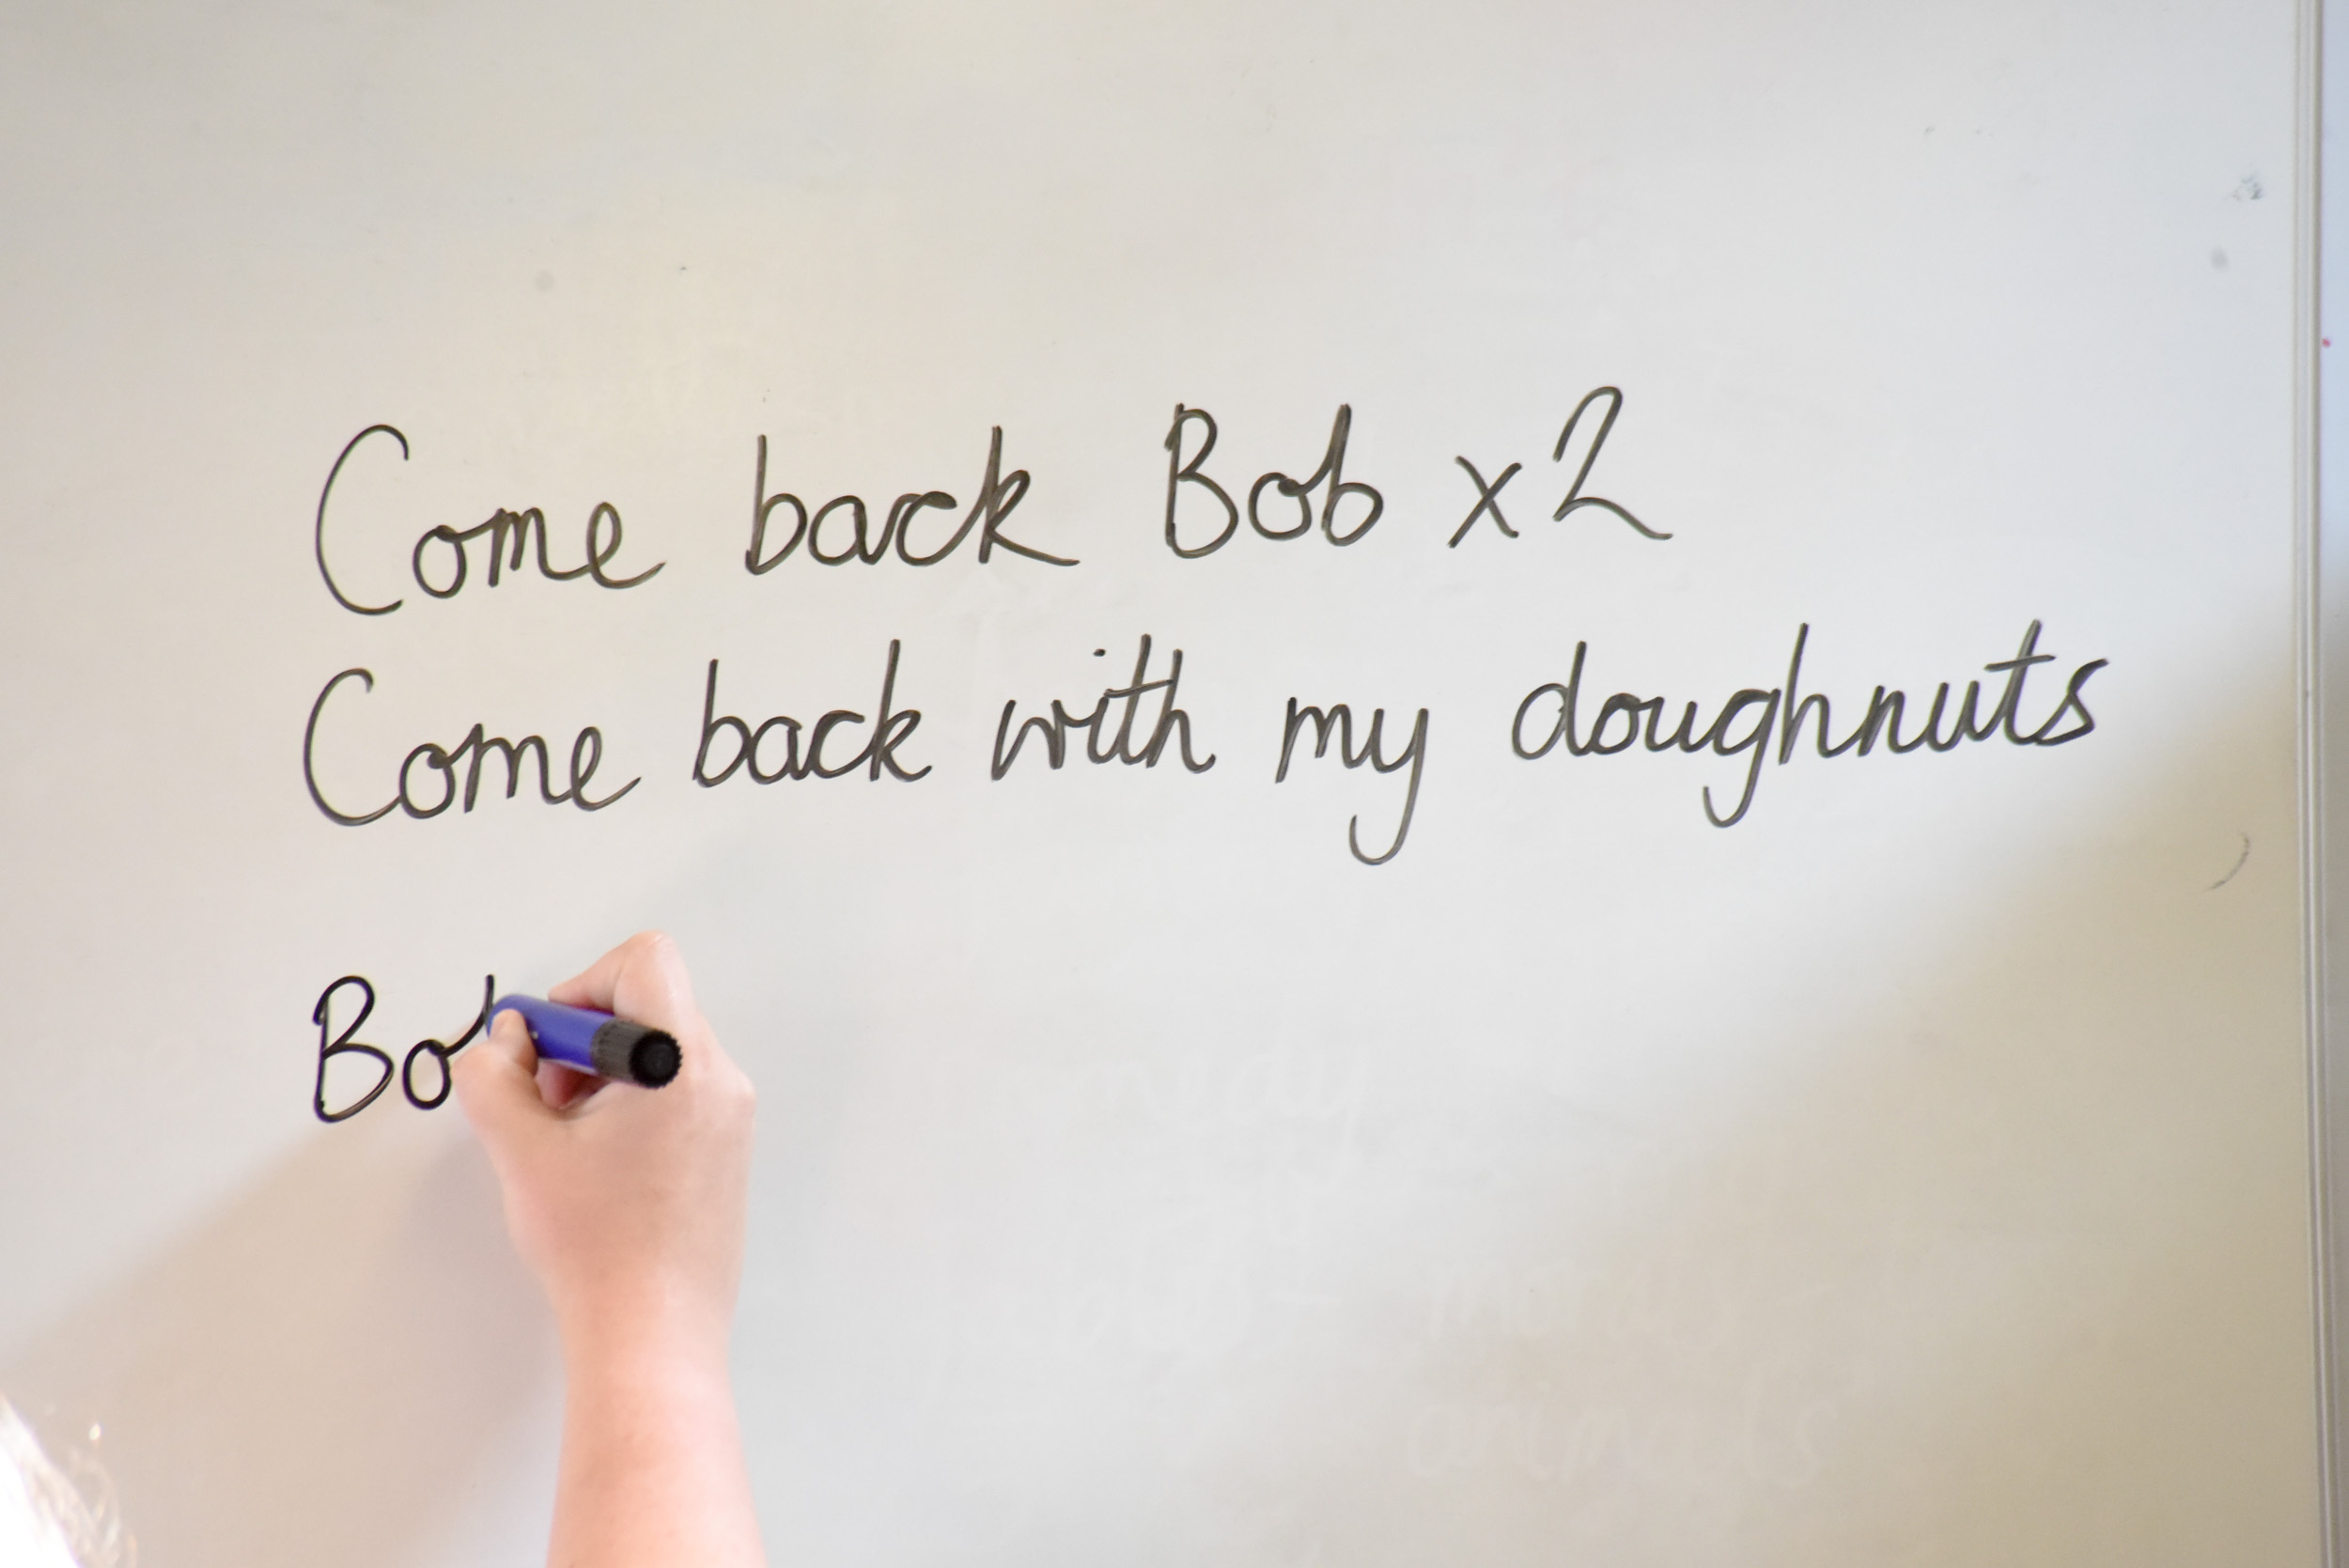 Come back Bob x2
Come back with my doughnuts
Bo